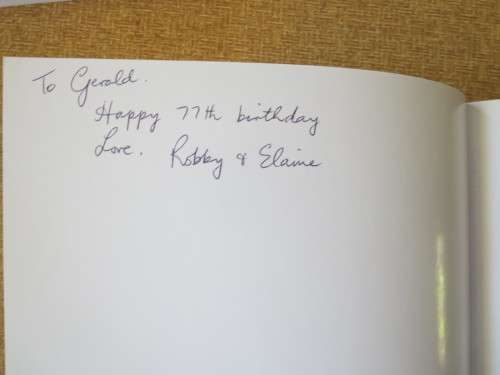 To Gerald.
Happy 77th birthday
Love. Robby & Elaine